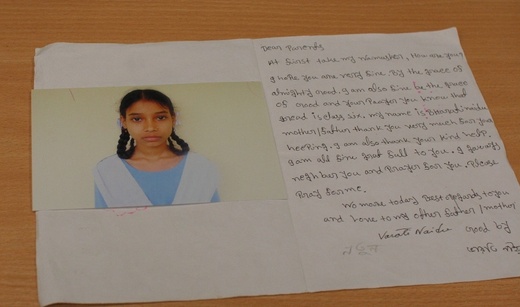 Dear Parents
At first take my namaster, How are you
I hope you are very fine. By the grace of
almighty Good, I am also fine be the grace
of Good and your Prayer you know that
I read is class six. my name is naidu
mother/father thank you very much for your
heeping. I am also thank your kind help.
I am all fine full to you. I
you and Prayer for you. Please
Pray for me.
No more today Best regards to you
and Love to my other father/mother/
Naidu Good by